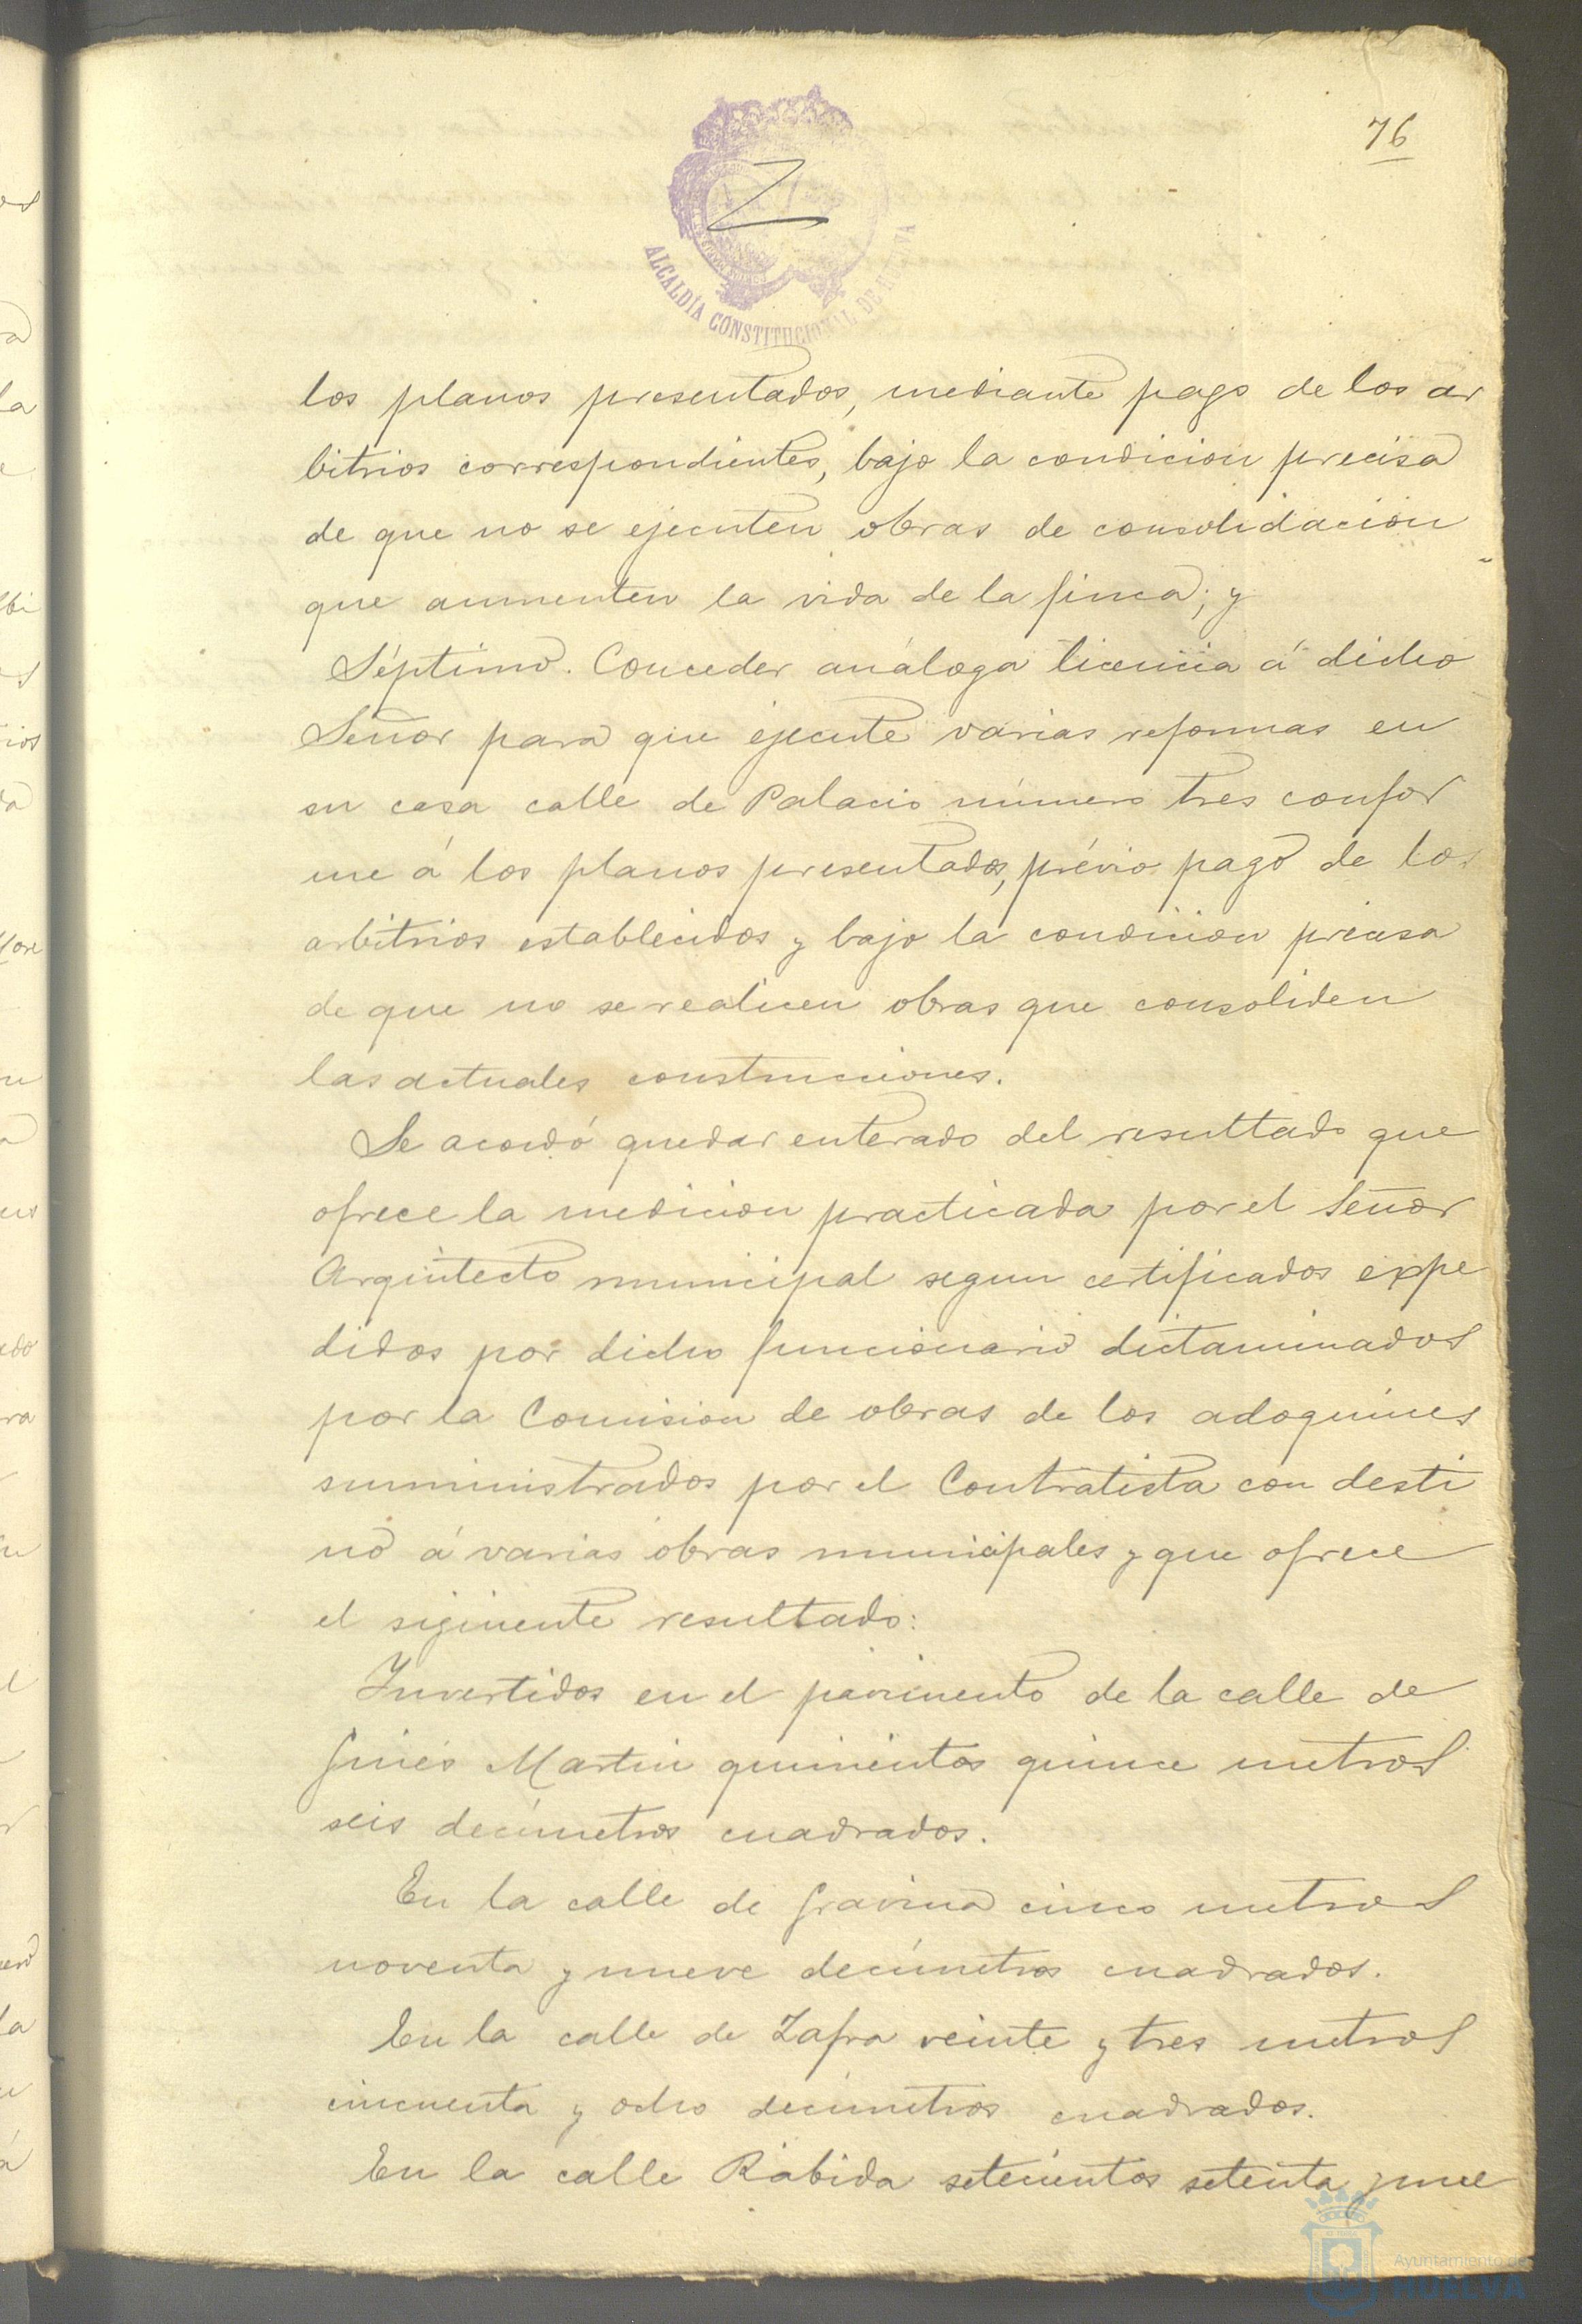 76
ALCALDÍA CONSTITUCIONAL DE HUELVA
los planos presentados, mediante pago de los ar
bitrios correspondientes, bajo la condicion precisa
de que no se ejecuten obras de consolidacion
que aumenten la vida de la finca; y
Séptimo. Conceder análoga licencia á dicho
Señor para que ejecute varias reformas en
su casa calle de Palacio número tres confor
me á los planos presentados, prévio pago de los
arbitrios establecidos y bajo la condicion precisa
de que no se realicen obras que consoliden
las actuales construcciones.
Se acordó quedar enterado del resultado que
ofrece la medicion practicada por el Señor
Arquitecto municipal segun certificados expe
didos por dicho funcionario dictaminados
por la Comision de obras de los adoquines
suministrados por el Contratista con desti
no á varias obras municipales y que ofrece
el siguiente resultado:
Invertidos en el pavimento de la calle de
Ginés Martin quinientos quince metros
seis decímetros cuadrados.
En la calle de Gravina cinco metros
noventa y nueve decímetros cuadrados.
En la calle de Zafra veinte y tres metros
cincuenta y ocho decimetros cuadrados.
En la calle Rábida setecientos setenta y nue
Ayuntamiento de
HUELVA